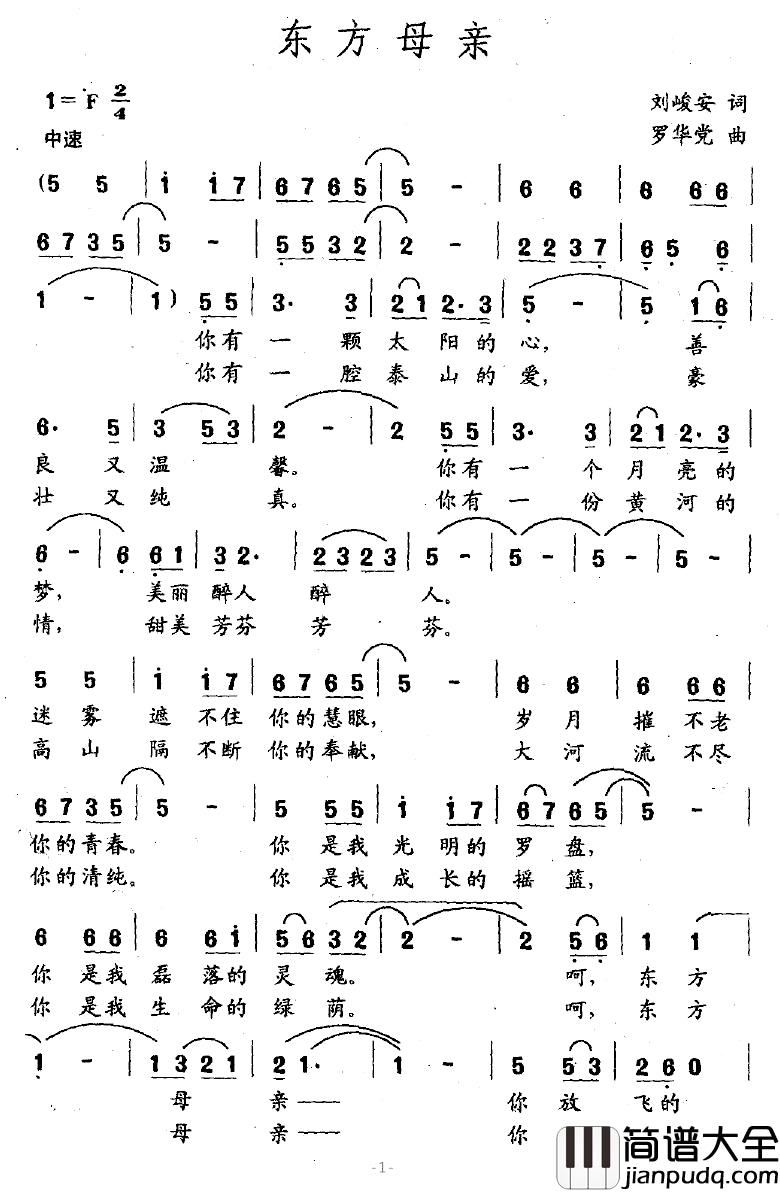 东方母亲
1=F 2/4
刘峻安 词
中速
罗华党 曲
(5 5 | i i7 | 6765 | 5 - | 6 6 | 6 66 |
6735 | 5 - | 5532 | 2 - | 2237 | 65 6 |
1 - | 1) 55 | 3· 3 | 21 2·3 | 5 - | 5 16 |
你有一颗太阳的心, 善
你有一腔泰山的爱, 豪
6· 5 | 3 53 | 2 - | 2 55 | 3· 3 | 21 2·3 |
良又温馨。 你有一个月亮的
壮又纯真。 你有一份黄河的
6 - | 6 61 | 32· | 2323 | 5 - | 5 - | 5 - | 5 - |
梦, 美丽醉人醉人。
情, 甜美芳芬芳芬。
5 5 | i i7 | 6765 | 5 - | 6 6 | 6 66 |
迷雾遮不住你的慧眼, 岁月摧不老
高山隔不断你的奉献, 大河流不尽
6735 | 5 - | 5 55 | i i7 | 6765 | 5 - |
你的青春。 你是我光明的罗盘,
你的清纯。 你是我成长的摇篮,
6 66 | 6 6i | 5632 | 2 - | 2 56 | 1 1 |
你是我磊落的灵魂。 呵, 东方
你是我生命的绿荫。 呵, 东方
1 - | 1321 | 21· | 1 - | 5 53 | 260 |
母亲—— 你放飞的
母亲—— 你
-1-
简谱大全
jianpudq.com